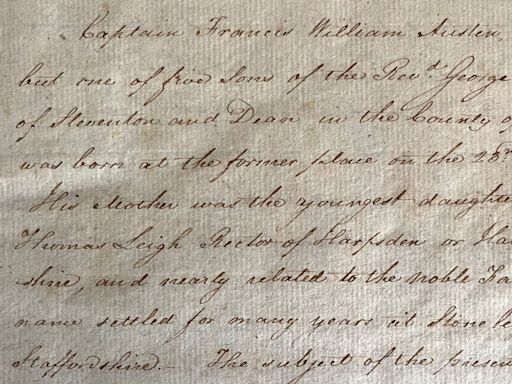 Captain Francis William Austen,
but one of five Sons of the Rev.d George
of Steventon and Dean in the County of
was born at the former place on the 23r
His Mother was the youngest daughte
Thomas Leigh Rector of Harpsden or Ha
shire, and nearly related to the noble Fa
name settled for many years at Stonele
Staffordshire. – The subject of the presen